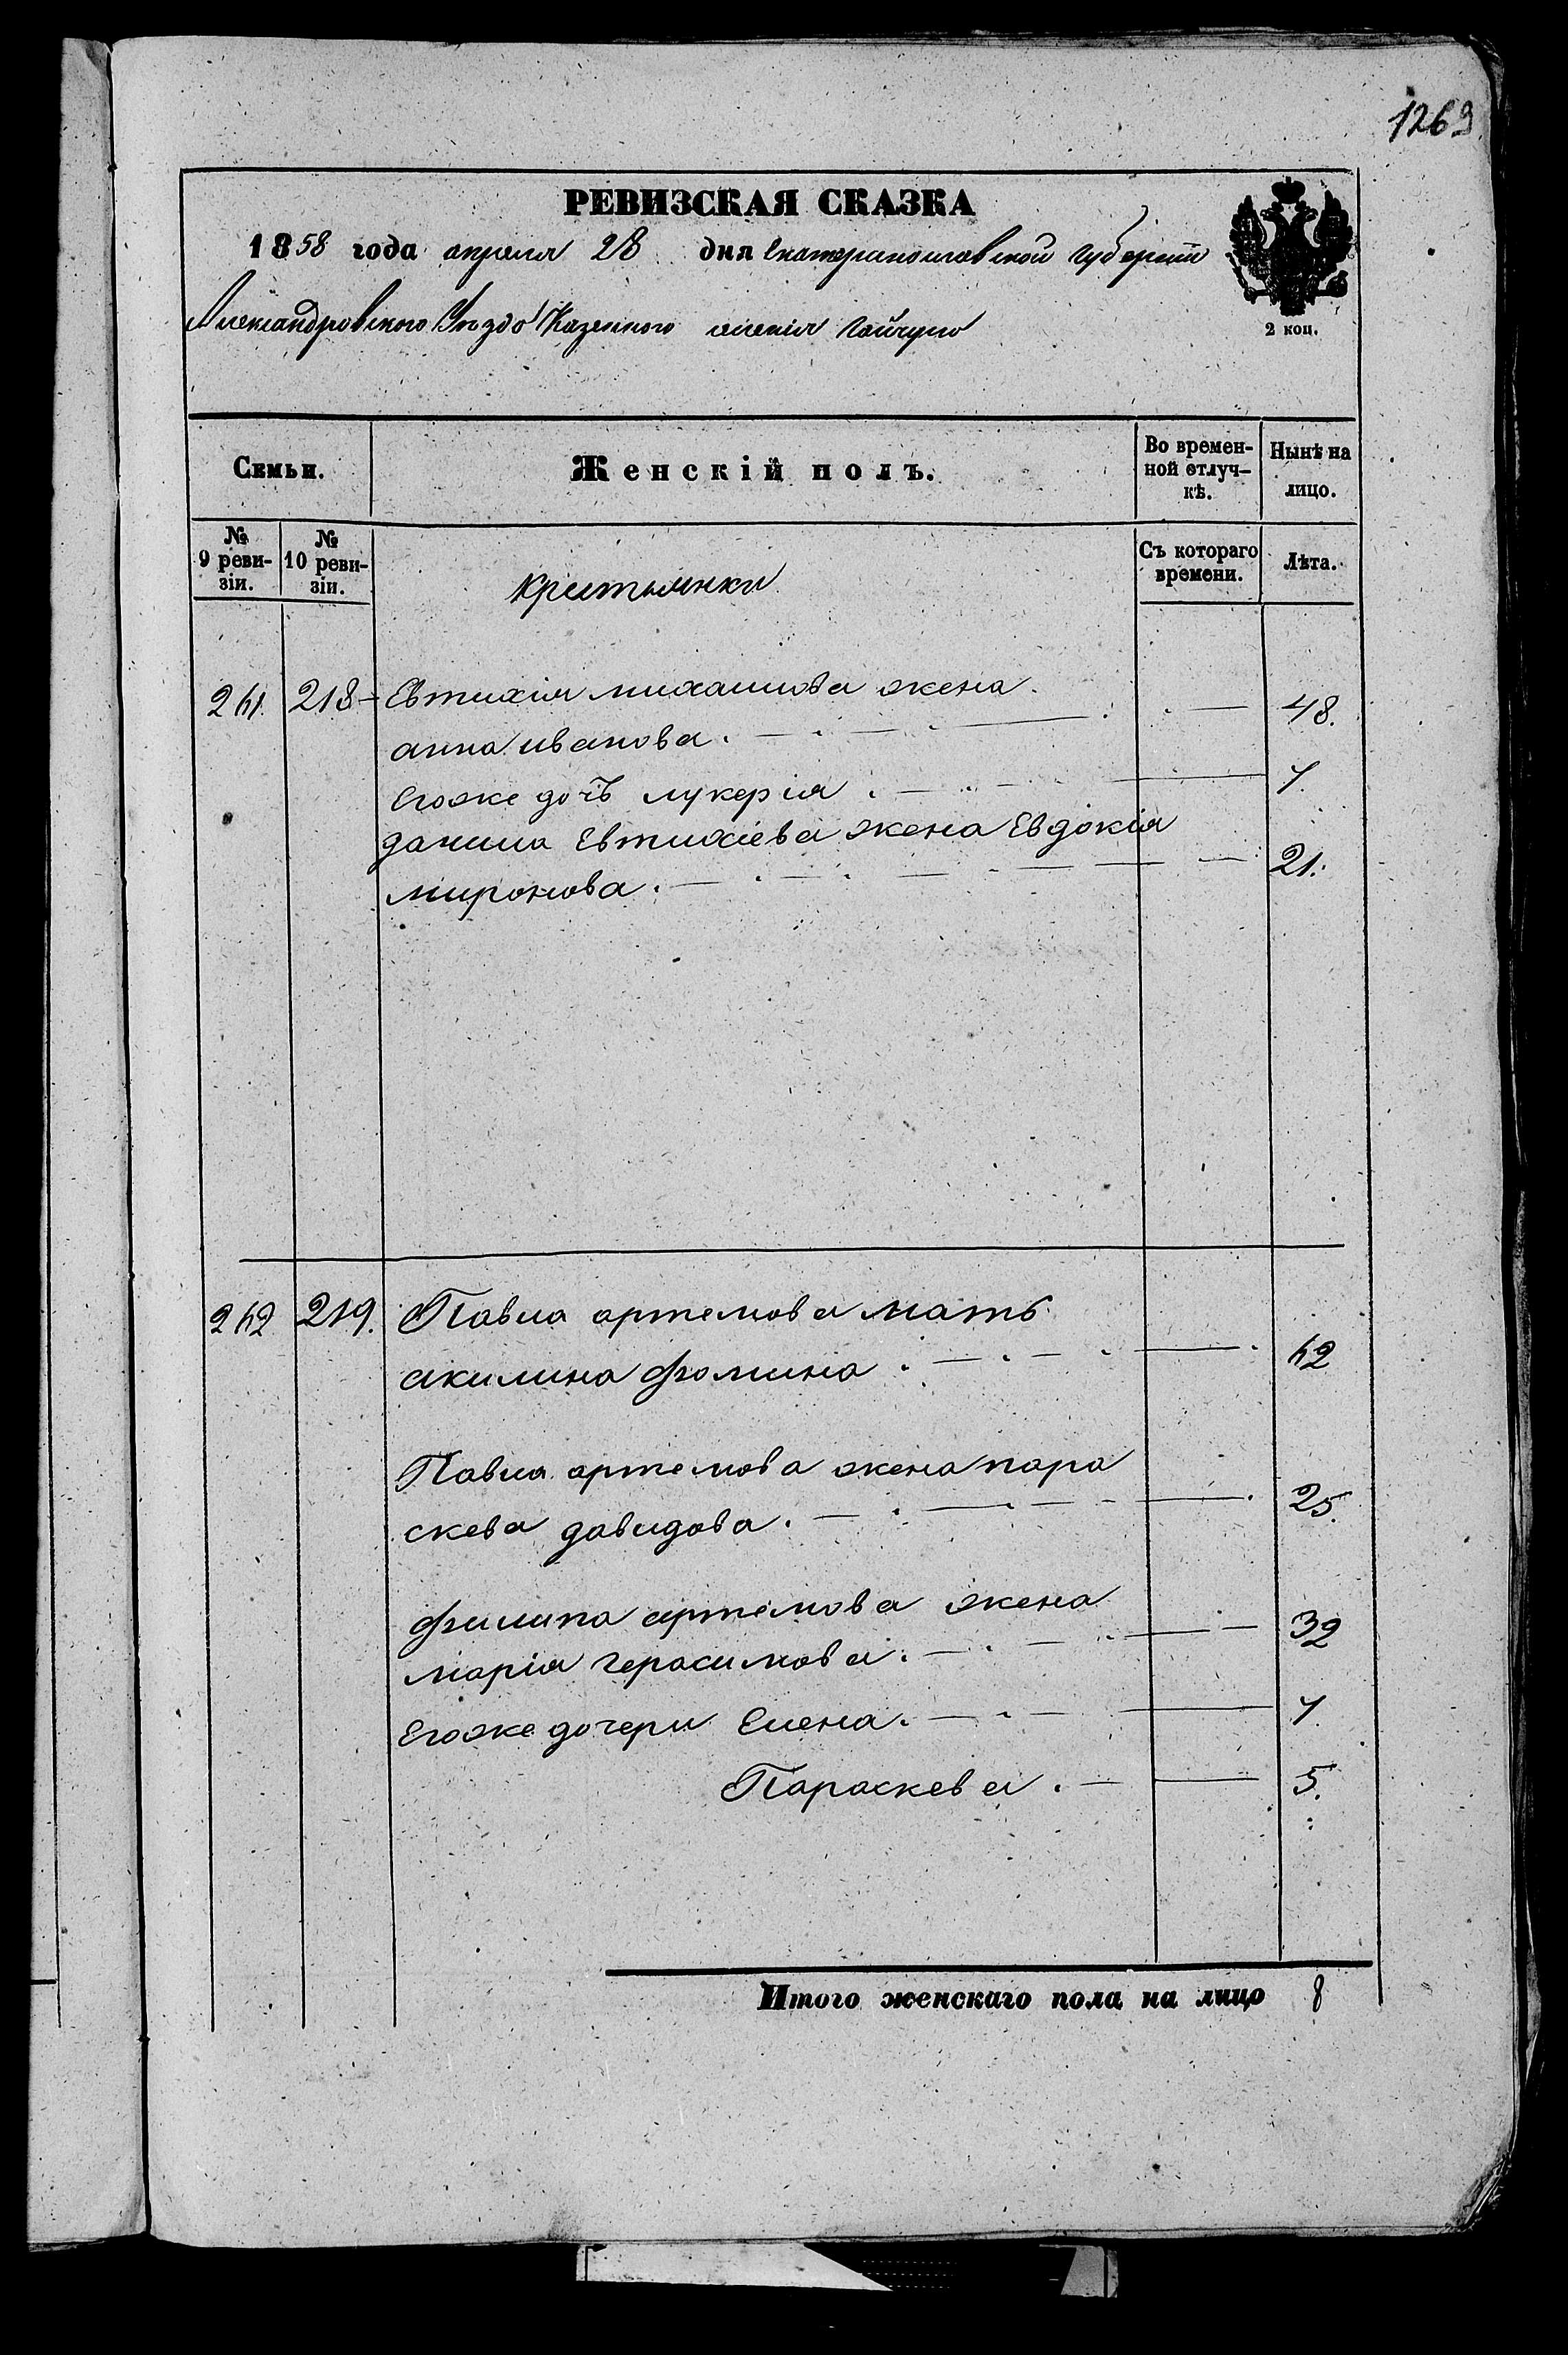 1269
РЕВИЗСКАЯ СКАЗКА
1858 года апреля 28 дня Екатеринославской губернiи
Александровского Уѣзда Казенного селенiя Гайчула
2 коп.
Семьи.
Женскiй полъ.
Во времен-
ной отлуч-
кѣ.
Нынѣ на
лицо.
№
9 реви-
зiи.
№
10 реви-
зiи.
крестьянки
Съ котораго
времени.
Лѣта.
261. 218 Евтихiя михаилова жена
анна иванова. 48.
Егоже дочь лукерiя. 7.
данила Евтихiева жена Евдокiя
миронова. 21.
262 219. Павла артемова мать
акилина фомина. 62
Павла артемова жена пара
скева давидова. 25.
филипа артемова жена
марiя герасимова. 32
Егоже дочери Елена. 7.
Параскева. 5.
Итого женскаго пола на лицо 8